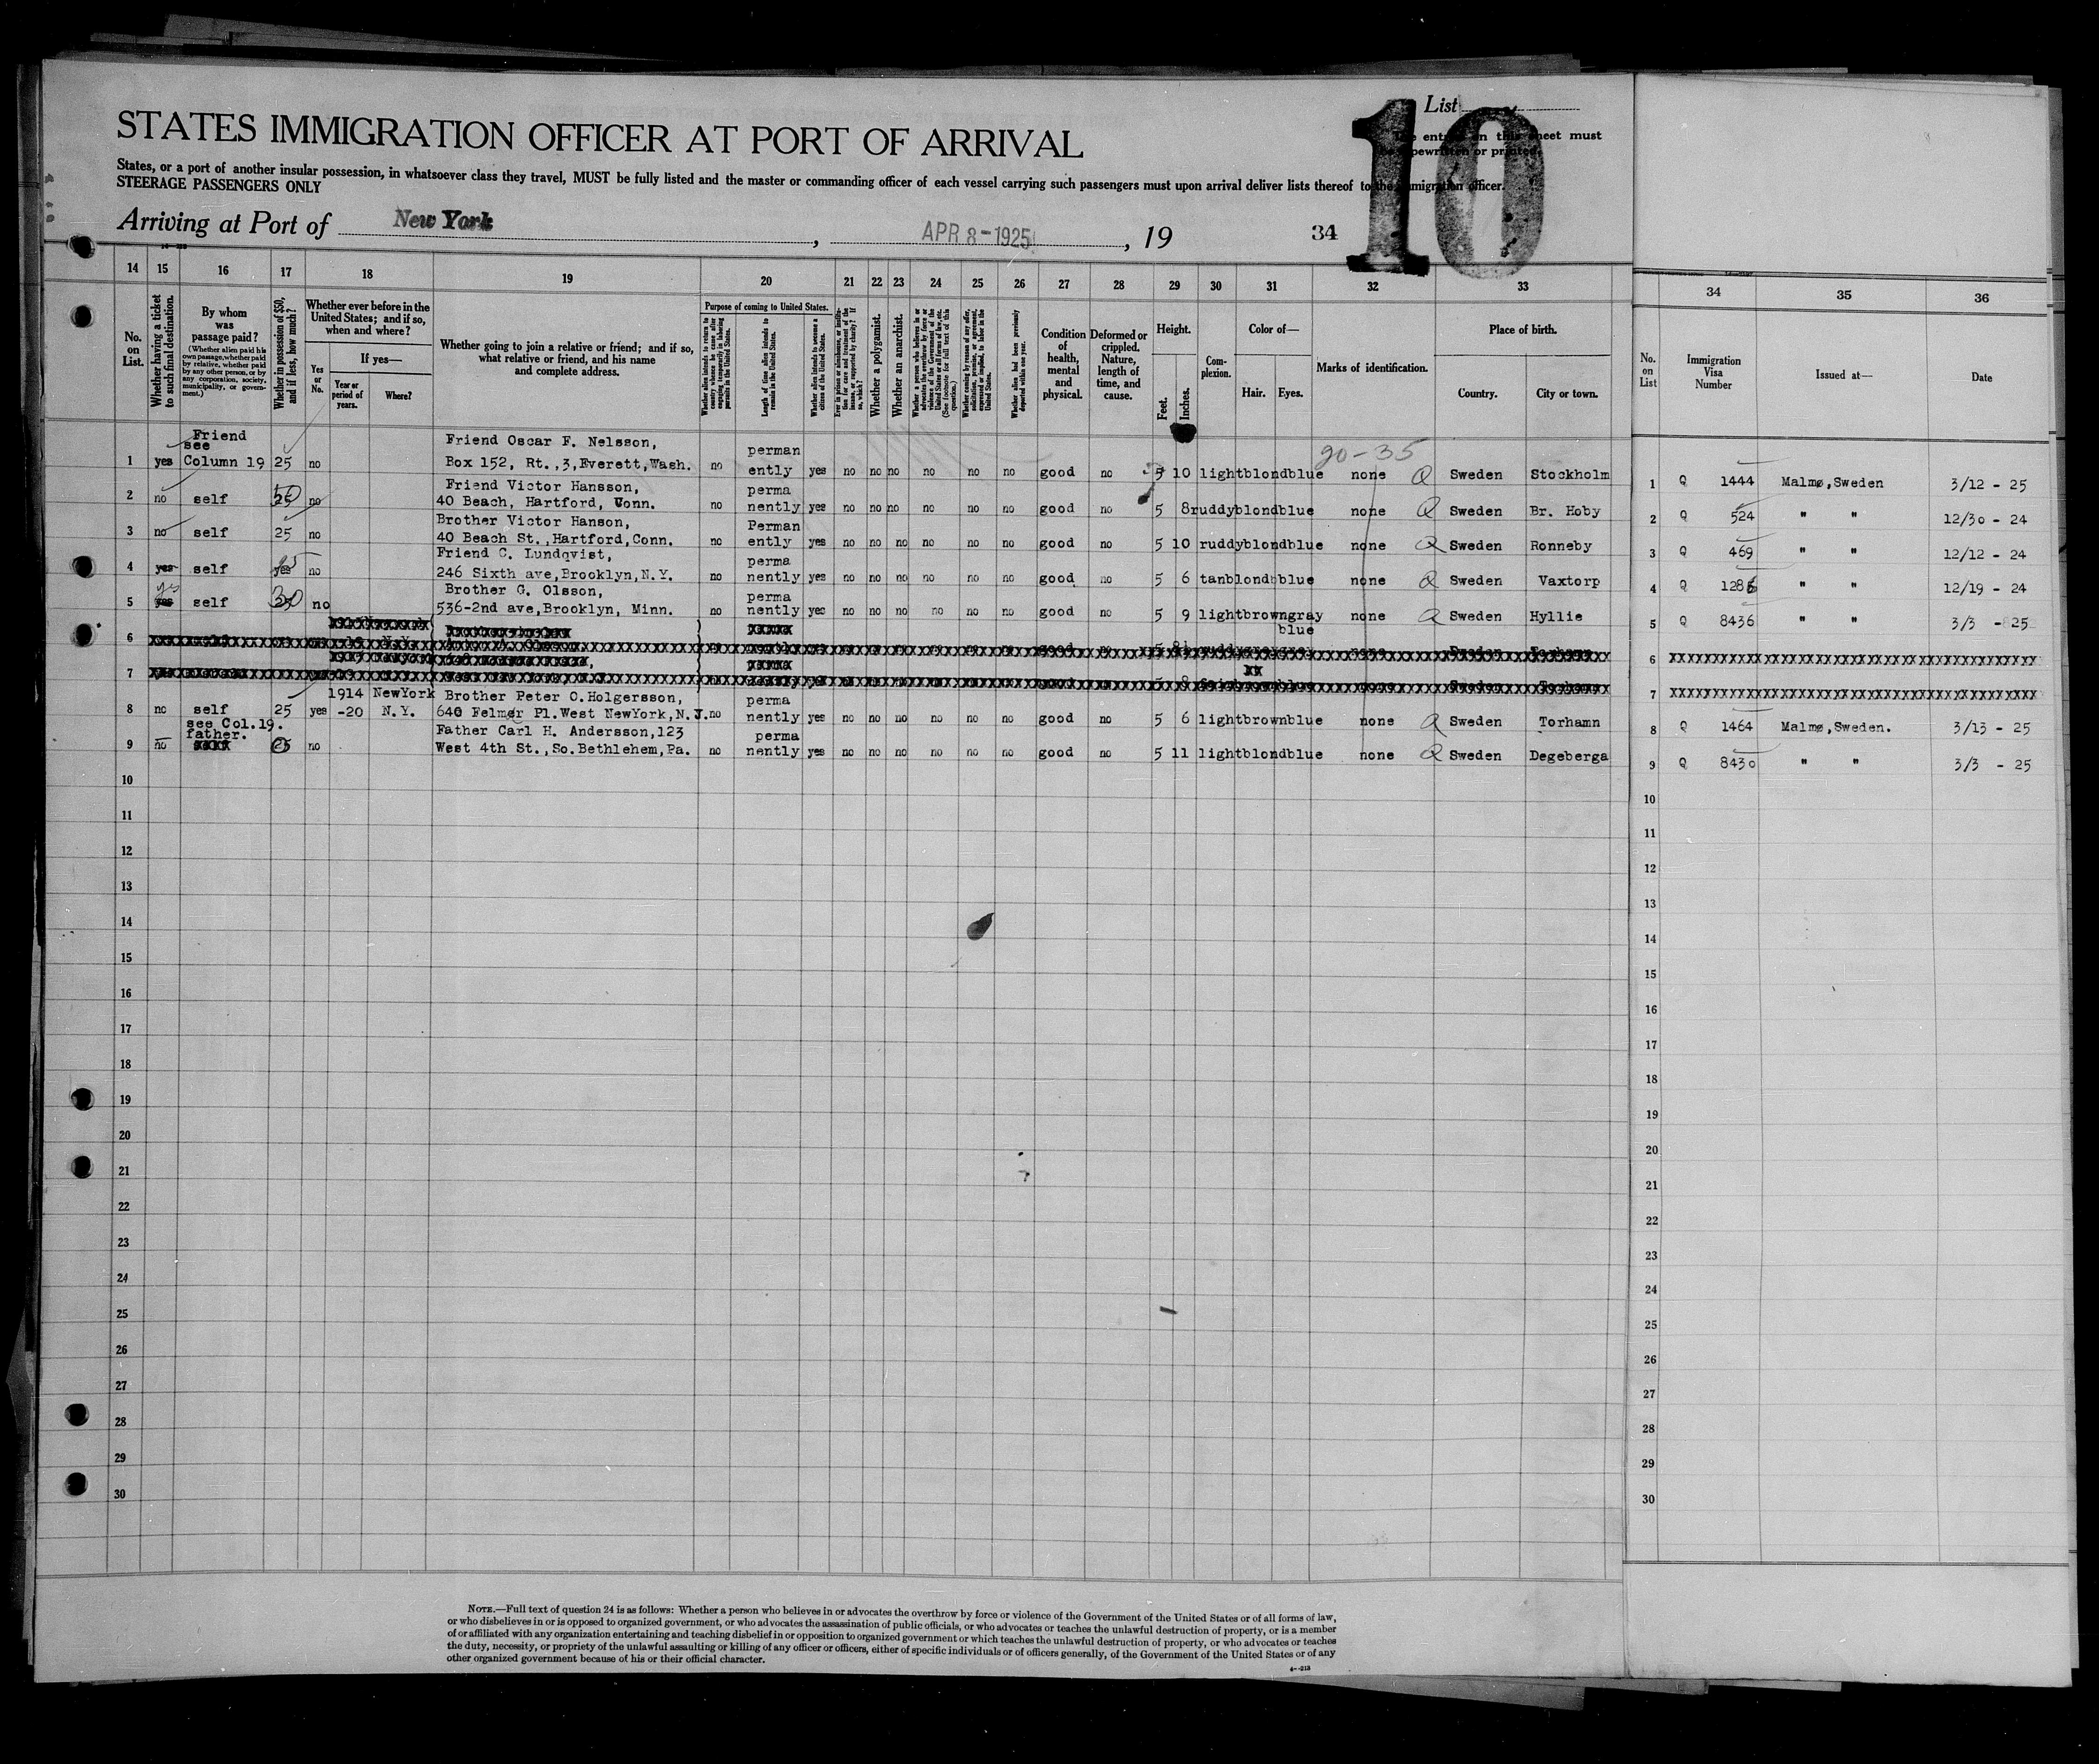 List
10
The entries on this sheet must
be typewritten or printed.
STATES IMMIGRATION OFFICER AT PORT OF ARRIVAL
States, or a port of another insular possession, in whatsoever class they travel, MUST be fully listed and the master or commanding officer of each vessel carrying such passengers must upon arrival deliver lists thereof to the immigration officer.
STEERAGE PASSENGERS ONLY
Arriving at Port of New York, APR 8-1925, 19
34
14 15 16 17 18 19 20 21 22 23 24 25 26 27 28 29 30 31 32 33 34 35 36
No. on List.
Whether having a ticket to such final destination.
By whom was passage paid?
(Whether alien paid his own passage, whether paid by relative, whether paid by any other person, or by any corporation, society, municipality, or government.)
Whether in possession of $50, and if less, how much?
Whether ever before in the United States; and if so, when and where?
Yes or No.
If yes—
Year or period of years.
Where?
Whether going to join a relative or friend; and if so, what relative or friend, and his name and complete address.
Purpose of coming to United States.
Whether alien intends to return to country whence he came after engaging temporarily in laboring pursuits in the United States.
Length of time alien intends to remain in the United States.
Whether alien intends to become a citizen of the United States.
Ever in prison or almshouse, or institution for care and treatment of the insane, or supported by charity? If so, which?
Whether a polygamist.
Whether an anarchist.
Whether alien had been previously deported within one year.
Condition of health, mental and physical.
Deformed or crippled. Nature, length of time, and cause.
Height.
Feet.
Inches.
Complexion.
Color of—
Hair.
Eyes.
Marks of identification.
Place of birth.
Country.
City or town.
No. on List
Immigration Visa Number
Issued at—
Date
20-35
1 yes Friend see Column 19 25 no Friend Oscar F. Nelsson, Box 152, Rt.,3,Everett,Wash. no permanently yes no no no no no no good no 5 10 light blond blue none Q Sweden Stockholm 1 Q 1444 Malmø,Sweden 3/12 - 25
2 no self 50 no Friend Victor Hansson, 40 Beach, Hartford, Conn. no permanently yes no no no no no no good no 5 8 ruddy blond blue none Q Sweden Br. Hoby 2 Q 524 " " 12/30 - 24
3 no self 25 no Brother Victor Hanson, 40 Beach St.,Hartford,Conn. no Permanently yes no no no no no no good no 5 10 ruddy blond blue none Q Sweden Ronneby 3 Q 469 " " 12/12 - 24
4 yes self no Friend C. Lundqvist, 246 Sixth ave,Brooklyn,N.Y. no permanently yes no no no no no no good no 5 6 tan blond blue none Q Sweden Vaxtorp 4 Q 1286 " " 12/19 - 24
5 yes self 30 no Brother G. Olsson, 536-2nd ave,Brooklyn, Minn. no permanently yes no no no no no no good no 5 9 light brown gray blue none Q Sweden Hyllie 5 Q 8436 " " 3/3 - 25
6 6 xxxxxxxxxxxxxxxxxxxxxxxxxxxxxxxxxxxxxx
7 7 xxxxxxxxxxxxxxxxxxxxxxxxxxxxxxxxxxxxxx
8 no self 25 yes 1914 -20 NewYork N.Y. Brother Peter C.Holgersson, 640 Felmer Pl.West NewYork,N.J. no permanently yes no no no no no no good no 5 6 light brown blue none Q Sweden Torhamn 8 Q 1464 Malmø,Sweden. 3/13 - 25
9 no see Col.19. father. 25 no Father Carl H. Andersson,123 West 4th St.,So.Bethlehem,Pa. no permanently yes no no no no no no good no 5 11 light blond blue none Q Sweden Degeberga 9 Q 8430 " " 3/3 - 25
10 10
11 11
12 12
13 13
14 14
15 15
16 16
17 17
18 18
19 19
20 20
21 21
22 22
23 23
24 24
25 25
26 26
27 27
28 28
29 29
30 30
NOTE.—Full text of question 24 is as follows: Whether a person who believes in or advocates the overthrow by force or violence of the Government of the United States or of all forms of law,
or who disbelieves in or is opposed to organized government, or who advocates the assassination of public officials, or who advocates or teaches the unlawful destruction of property, or is a member
of or affiliated with any organization entertaining and teaching disbelief in or opposition to organized government or which teaches the unlawful destruction of property, or who advocates or teaches
the duty, necessity, or propriety of the unlawful assaulting or killing of any officer or officers, either of specific individuals or of officers generally, of the Government of the United States or of any
other organized government because of his or their official character.